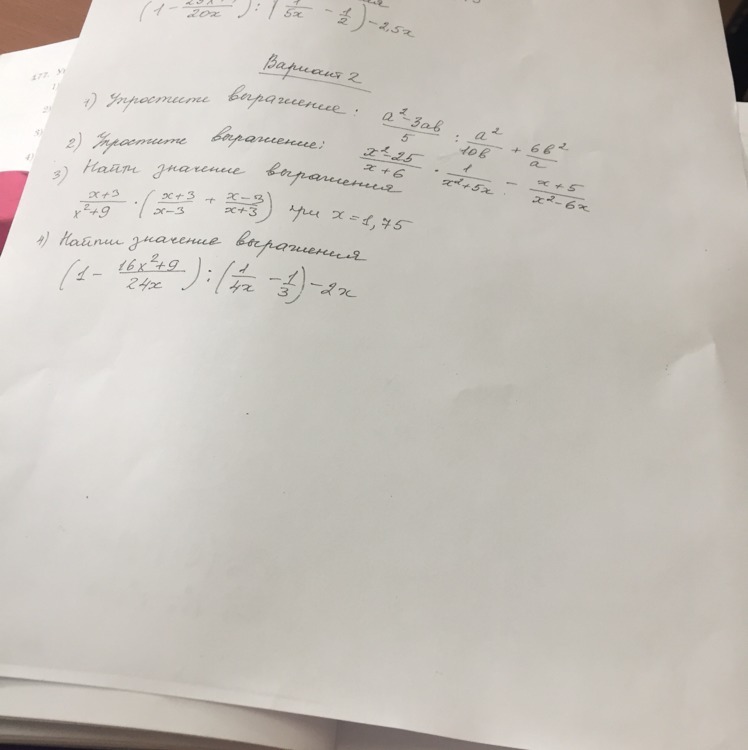 (1 - 25x²+4/20x) : (1/5x - 1/2) - 2,5x
Вариант 2
1) Упростите выражение: a²-3ab/5 : a²/10b + 6b²/a
2) Упростите выражение: x²-25/x+6 · 1/x²+5x - x+5/x²-6x
3) Найти значение выражения
x+3/x²+9 · (x+3/x-3 + x-3/x+3) при x=1,75
4) Найти значение выражения
(1 - 16x²+9/24x) : (1/4x - 1/3) - 2x